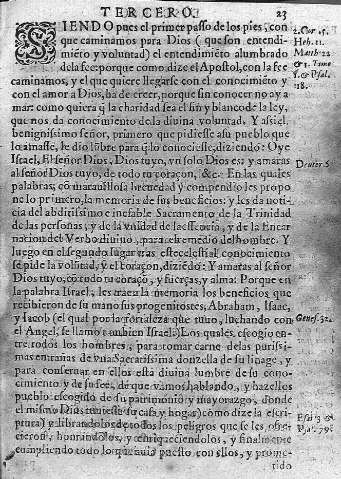 TERCERO. 23
SIENDO pues el primer passo de los pies, con
que caminamos para Dios (que son entendi-
miẽto y voluntad) el entendimiẽto alumbrado
de la fee: porque como dize el Apostol, con la fee
caminamos, y el que quiere llegarse con el conocimiẽto y
con el amor a Dios, ha de creer, porque sin conocer no ay a
mar: como quiera q̃ la charidad sea el fin y blanco de la ley,
que nos da conocimiento de la divina voluntad. Y assi el
benignissimo señor, primero que pidiesse a su pueblo que
lo amasse, le dio libre para q̃ lo conociesse, diziendo: Oye
Israel, El señor Dios, Dios tuyo, vn solo Dios es: y amaras
al señor Dios tuyo, de todo tu coraçon, &c. En las quales
palabras, cõ maravillosa brevedad y compendio les propo
ne lo primero, la memoria de sus beneficios: y les da noti-
cia del abditissimo e inefable Sacramento de la Trinidad
de las personas, y de la vnidad de la essencia, y de la Encar
nacion del Verbo divino, para el remedio del hombre. Y
luego en el segundo lugar tras este celestial conocimiento
se pide la volũtad, y el coraçon, diziẽdo: Y amaras al señor
Dios tuyo, cõ todo tu coraçõ, y fuerças, y alma: Porque en
la palabra Israel, les trae a la memoria los beneficios que
recibieron de su mano sus progenitores, Abraham, Isaac,
y Iacob (el qual por la fortaleza que tuvo, luchando con
el Angel, se llamo tambien Israel.) Los quales, escogio en-
tre todos los hombres, para tomar carne de las puris-
simas entrañas de vna Sacratissima donzella de su linage, y
para conservar en ellos esta divina lumbre de su cono-
cimiento y de su fee, de que vamos hablando, y hazelles
pueblo escogido de su patrimonio y mayorazgo, donde
el mismo Dios tuviesse su casa y hogar (como dize la escri-
ptura) y librandolos de todos los peligros que se les
cieron, honrandolos, y enriqueciendolos, y finalmente
cumpliendo todo lo que avia puesto con ellos, y prome-
tido
2. Cor. 5.
Heb. 11.
Matth. 22
& 1. Timo
& Psal.
118.
Deuter. 6
Genes. 32.